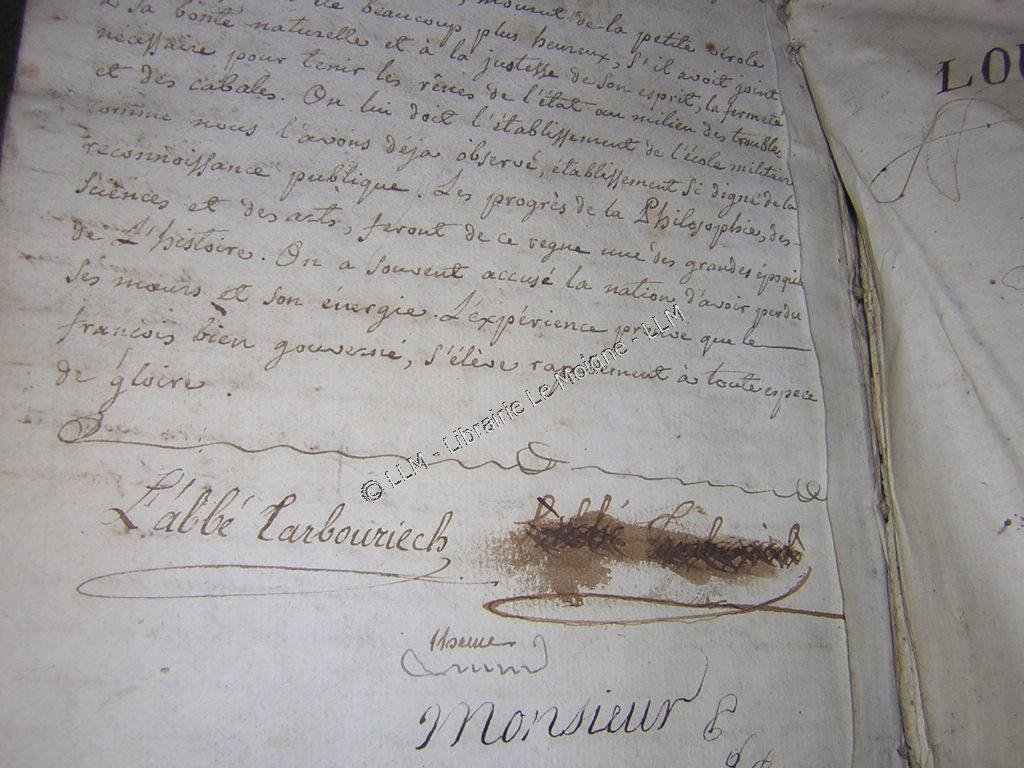 mourut de la petite vérole
beaucoup plus heureux, s'il avoit joint
à sa bonté naturelle et à la justesse de son esprit, la fermeté
nécessaire pour tenir les rênes de l'état au milieu des troubles
et des cabales. On lui doit l'établissement de l'école militaire
comme nous l'avons déja observé, établissement si digne de la
reconnoissance publique. Les progrès de la Philosophie, des
Sciences et des arts, feront de ce regne une des grandes époques
de L'histoire. On a souvent accusé la nation d'avoir perdu
ses mœurs et son énergie. L'éxpérience prouve que le
francois bien gouverné, s'élève rapidement à toute espece
de gloire
© LLM - Librairie Le Moiane - LLM
L'abbé Tarbouriech
Monsieur
LOU